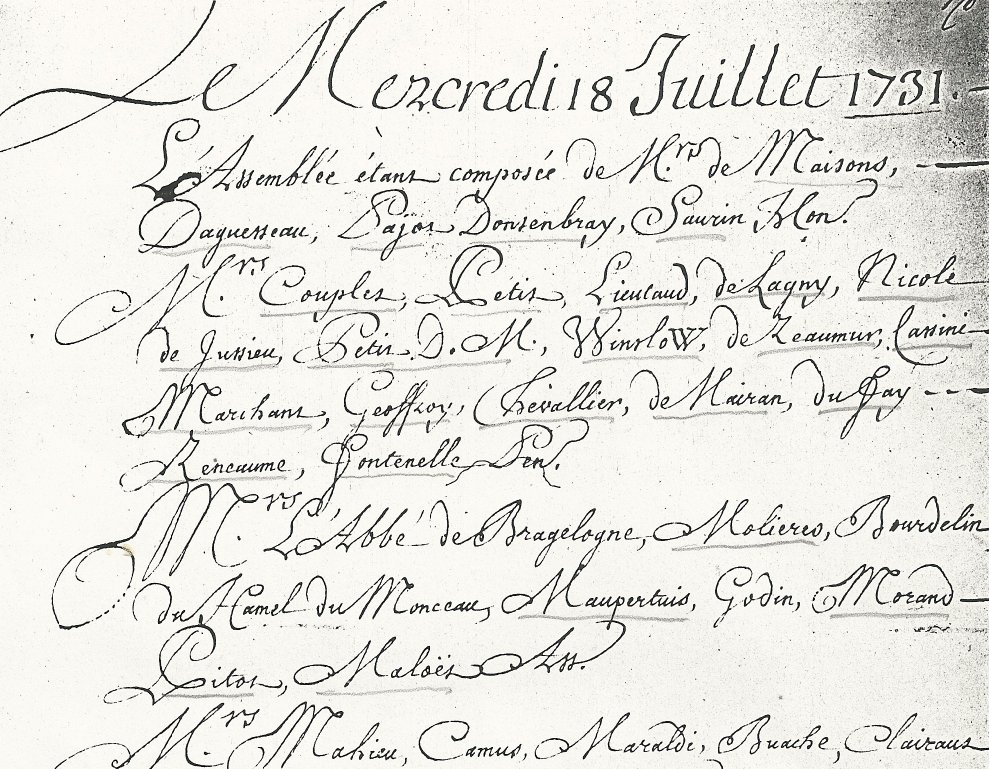 Le Mercredi 18 Juillet 1731.
L'Assemblée étant composée de M.rs de Maisons,
Daguesseau, Pajot Donsenbray, Saurin Hon.
M.rs Couplet, Petit, Lieutaud, de Lagny, Nicole
de Jussieu, Petit D. M., Winslow, de Reaumur, Cassini
Marchant, Geoffroy, Chevallier, de Mairan, du Fay
Reneaume, Fontenelle Pen.
M.rs L'Abbé de Bragelogne, Molieres, Bourdelin
du Hamel du Monceau, Maupertuis, Godin, Morand
Pitot, Maloët Ass.
M.rs Mahieu, Camus, Maraldi, Buache, Clairaut